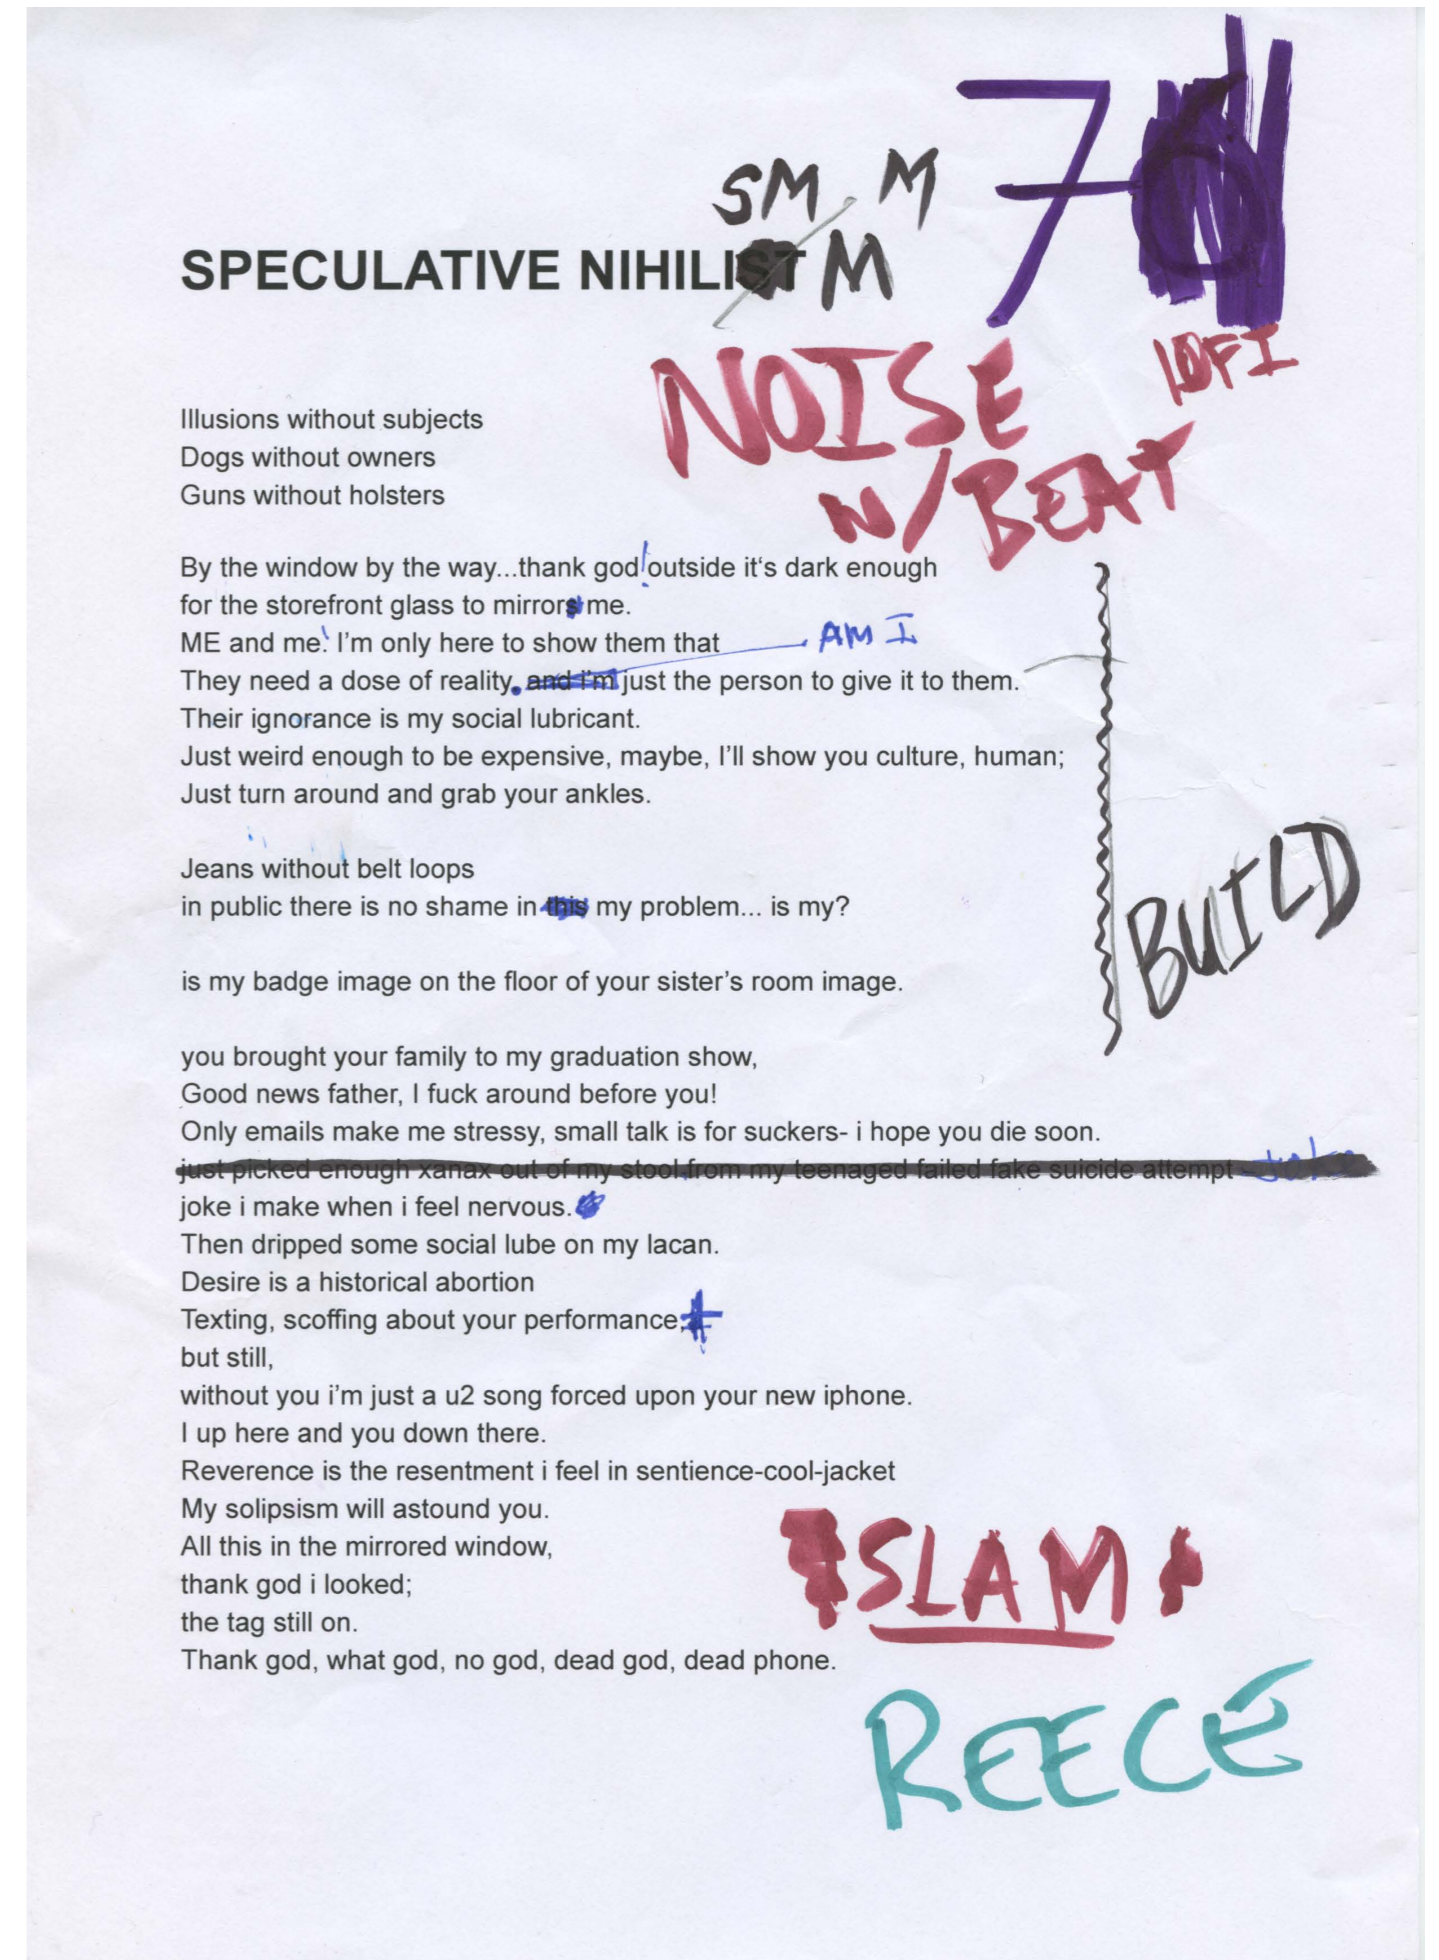 7
SM M
SPECULATIVE NIHILIST M
LOFI
NOISE
W/BEAT
Illusions without subjects
Dogs without owners
Guns without holsters
By the window by the way...thank god!outside it's dark enough
for the storefront glass to mirrors me.
ME and me! I'm only here to show them that AM I
They need a dose of reality. and i'm just the person to give it to them.
Their ignorance is my social lubricant.
Just weird enough to be expensive, maybe, I'll show you culture, human;
Just turn around and grab your ankles.
Jeans without belt loops
in public there is no shame in this my problem... is my?
BUILD
is my badge image on the floor of your sister's room image.
you brought your family to my graduation show,
Good news father, I fuck around before you!
Only emails make me stressy, small talk is for suckers- i hope you die soon.
just picked enough xanax out of my stool from my teenaged failed fake suicide attempt
joke i make when i feel nervous.
Then dripped some social lube on my lacan.
Desire is a historical abortion
Texting, scoffing about your performance,
but still,
without you i'm just a u2 song forced upon your new iphone.
I up here and you down there.
Reverence is the resentment i feel in sentience-cool-jacket
My solipsism will astound you.
All this in the mirrored window,
thank god i looked;
the tag still on.
SLAM
Thank god, what god, no god, dead god, dead phone.
REECE